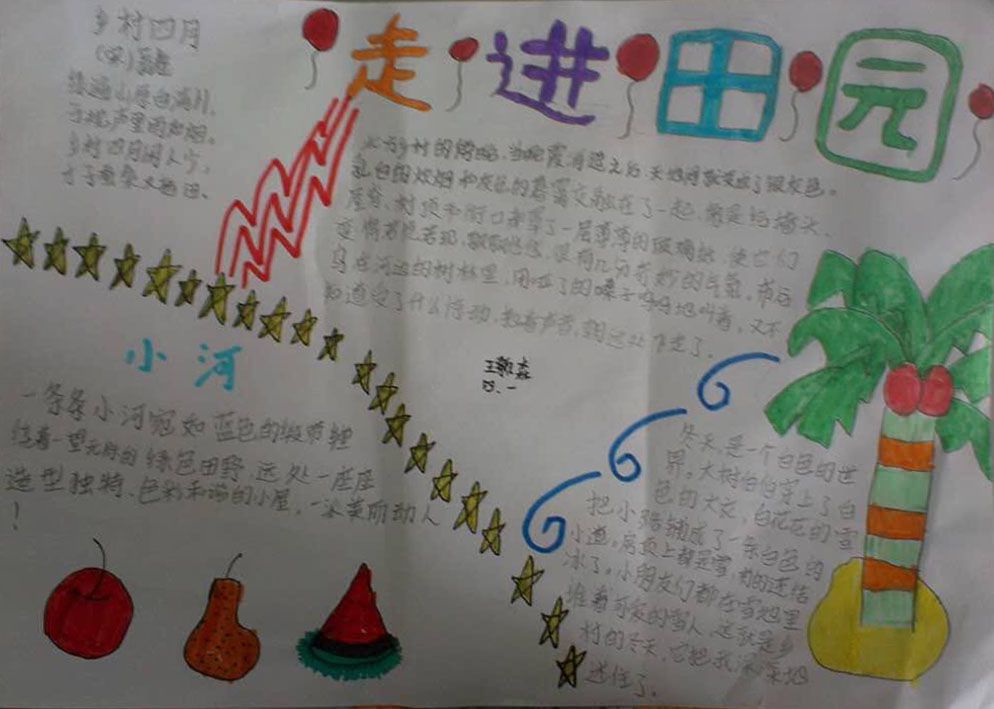 走进田园
乡村四月
(宋)翁卷
绿遍山原白满川,
子规声里雨如烟。
乡村四月闲人少,
才了蚕桑又插田。
乡村的傍晚,当晚霞消退之后,天地间就变成了银灰色。
乳白的炊烟和灰色的暮霭交融在了一起,像是给墙头、
屋脊、树顶和街口都罩了一层薄薄的玻璃纸,使它们
变得若隐若现,飘飘悠悠,很有几分奇妙的气氛。
乌在河边的树林里,用哑了的嗓子呜呜地叫着,又不
知道受了什么惊动,拍着声音,朝远处飞去了。
王
四.一
小河
一条条小河宛如蓝色的缎带缠
绕着一望无际的绿色田野,远处一座座
造型独特、色彩和谐的小屋,
!
冬天,是一个白色的世
界。大树伯伯穿上了白
色的大衣,白花花的雪
把小路铺成了一条白色的
小道,房顶上都是雪,有的还结
冰了。小朋友们都在雪地里
堆着可爱的雪人。这就是乡
村的冬天,它把我深深地
迷住了。